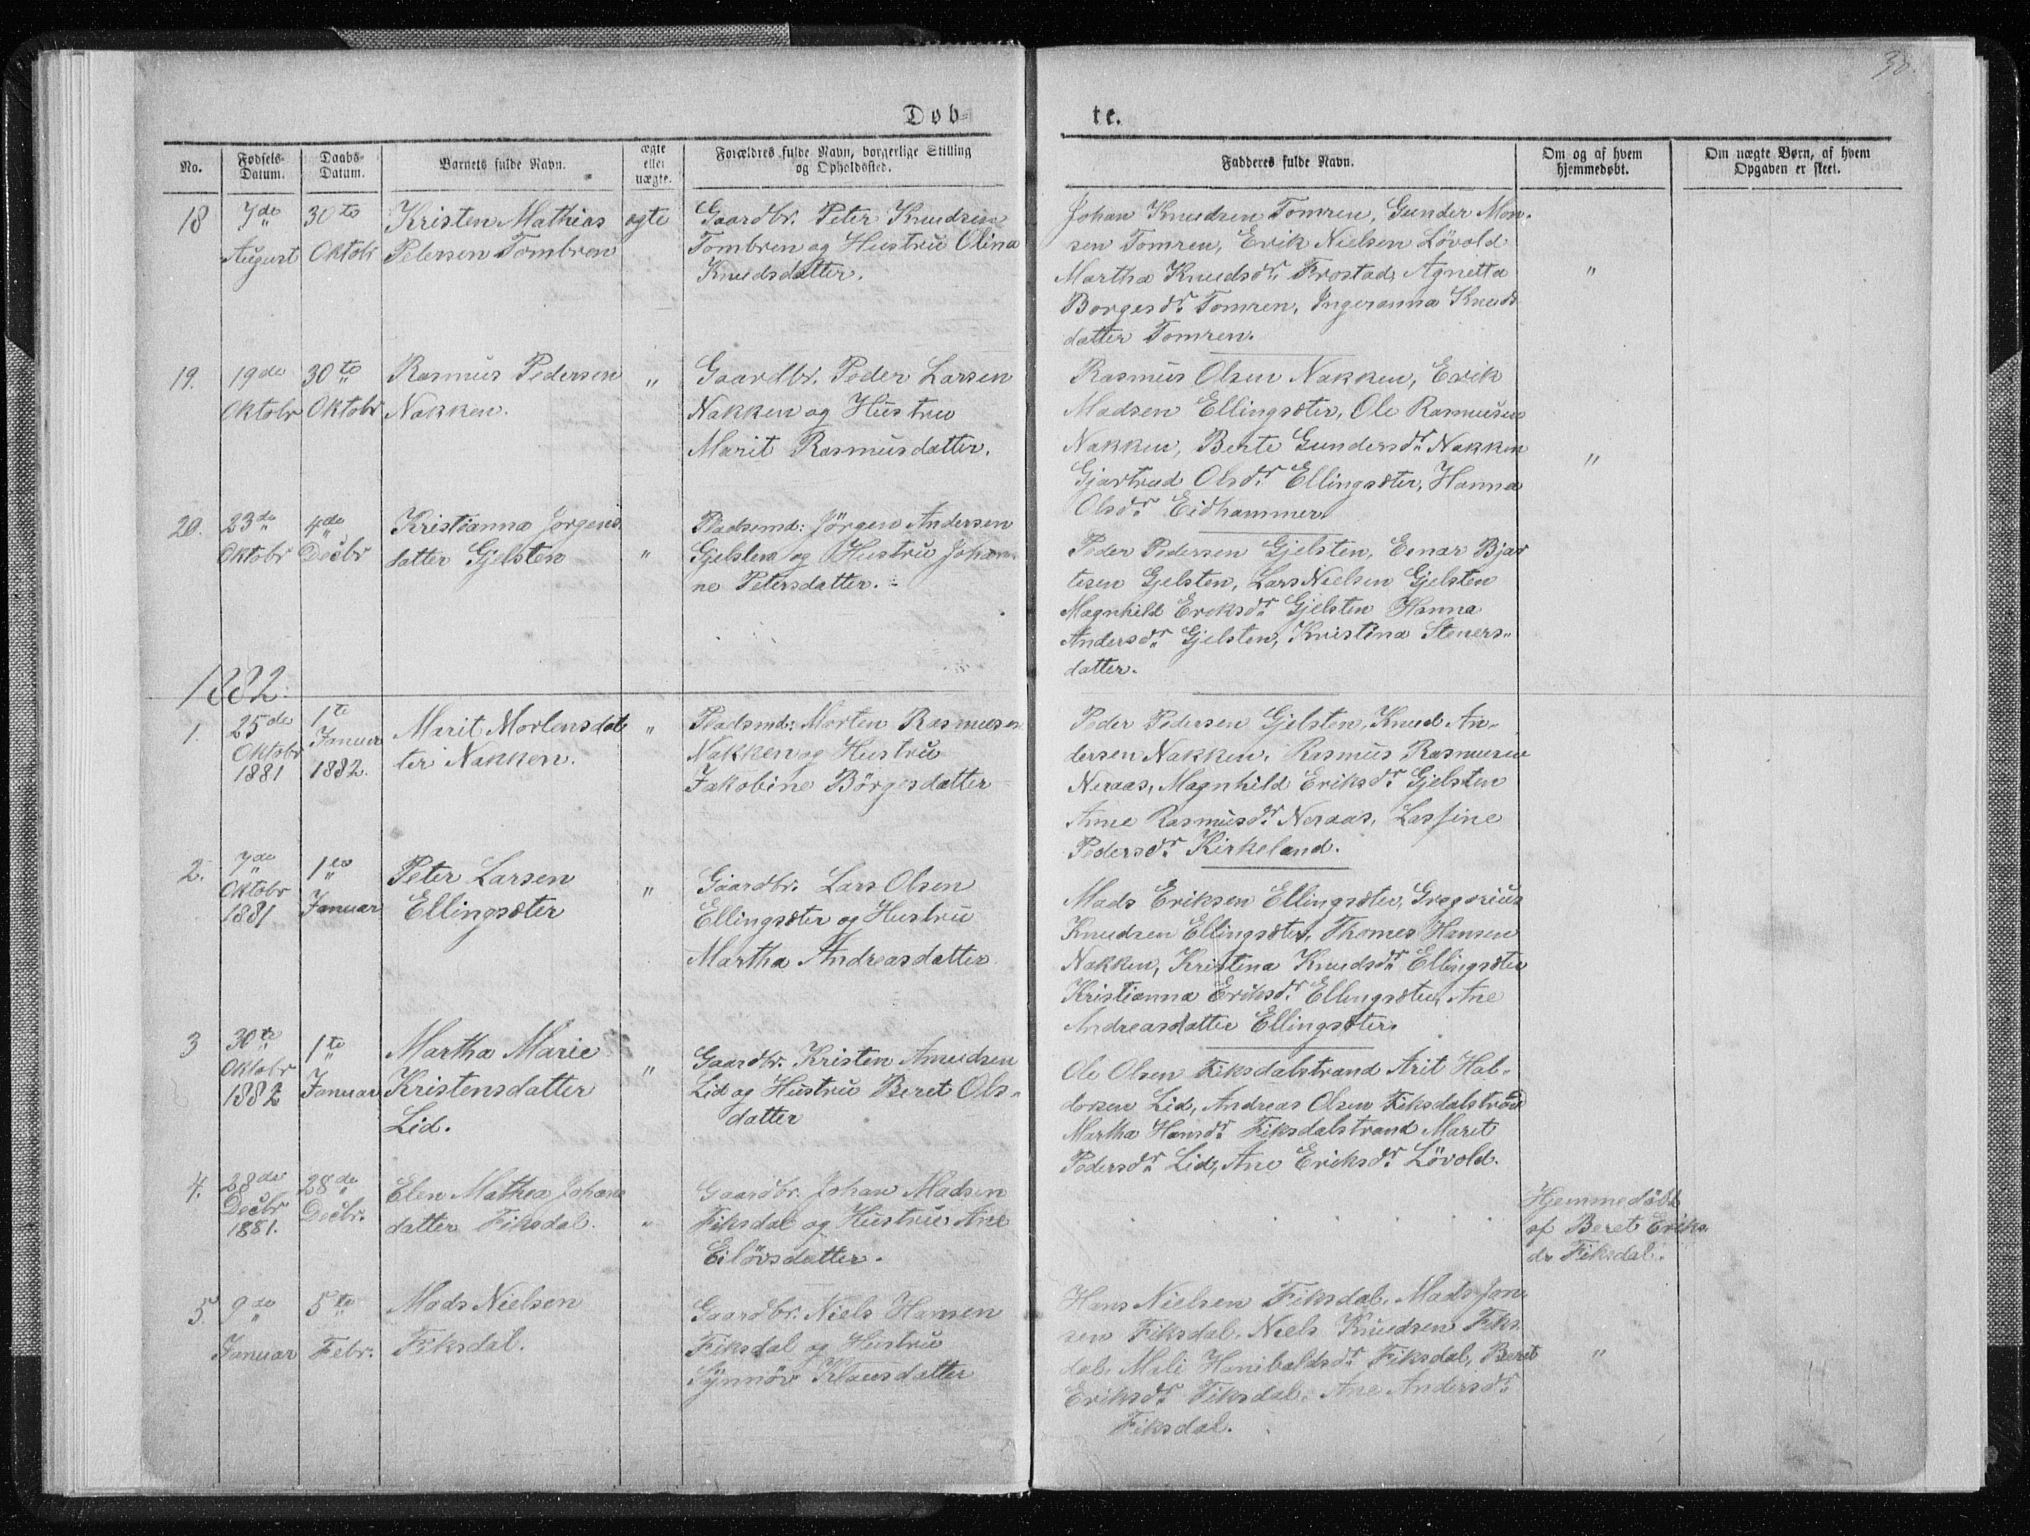 30.
Døb-
te.
No.
Fødsels-
Datum.
Daabs-
Datum.
Barnets fulde Navn.
ægte
eller
uægte.
Forældres fulde Navn, borgerlige Stilling
og Opholdssted.
Fadderes fulde Navn.
Om og af hvem
hjemmedøbt.
Om uægte Børn, af hvem
Opgaven er skeet.
18
7de
August
30te
Oktob
Kristen Mathias
Petersen Tombren
ægte
Gaardbr. Peter Knudsen
Tombren og Hustru Olina
Knudsdatter.
Johan Knudsen Tomren, Gunder Mon-
sen Tomren, Erik Nielsen Lövold
Martha Knudsdr. Frostad, Agnetta
Borgesdr. Tomren, Ingeranna Knuds
datter Tomren.
"
19.
19de
Oktobr
30te
Oktobr
Rasmus Pedersen
Nakken.
"
Gaardbr. Peder Larsen
Nakken og Hustru
Marit Rasmusdatter.
Rasmus Olsen Nakken, Erik
Madsen Ellingsæter, Ole Rasmusen
Nakken, Berte Gundersdr. Nakken
Gjartrud Olsdr. Ellingsæter, Hanna
Olsdr. Eidhammer
"
20.
23de
Oktobr
4de
Decbr
Kristianna Jorgens
datter Gjelsten
"
Pladsmd: Jörgen Andersen
Gjelsten og Hustru Johan-
ne Petersdatter.
Peder Pedersen Gjelsten, Einar Bjar
tesen Gjelsten, Lars Nielsen Gjelsten
Magnhild Eriksdr. Gjelsten Hanna
Andersdr. Gjelsten, Kristina Steners-
datter.
1882.
1.
25de
Oktobr
1881
1te
Januar
1882.
Marit Mortensdat
ter Nakken.
"
Pladsmd: Morten Rasmusen
Nakken og Hustru
Jakobine Börgesdatter
Peder Pedersen Gjelsten, Knud An-
dersen Nakken, Rasmus Rasmusen
Neraas, Magnhild Eriksdr. Gjelsten
Anne Rasmusdr. Neraas, Lassine
Pedersdr. Kirkeland.
2.
7de
Oktobr
1881
1te
Januar
Peter Larsen
Ellingsæter
"
Gaardbr. Lars Olsen
Ellingsæter og Hustru
Martha Andreasdatter
Mads Eriksen Ellingsæter, Gregorius
Knudsen Ellingsæter, Thomes Hansen
Nakken, Kristina Knudsdr. Ellingsæter
Kristianna Eriksdr. Ellingsæter, Ane
Andreasdatter Ellingsæter.
3
30te
Oktobr
1882
1te
Januar
Martha Marie
Kristensdatter
Lid.
"
Gaardbr. Kristen Amudsen
Lid og Hustru Beret Ols-
datter
Ole Olsen Fiksdalstrand Arit Hal-
dorsen Lid, Andreas Olsen Fiksdalstrand
Martha Hansdr. Fiksdalstrand Maret
Pedersdr. Lid, Ane Eriksdr. Lövold.
4.
28de
Decbr
1881.
28de
Decbr.
Elen Mathea Johans
datter Fiksdal.
"
Gaardbr. Johan Madsen
Fiksdal og Hustru Ane
Eilövsdatter.
Hjemmedöbt
af Beret Eriks
dr Fiksdal.
5.
9de
Januar
5te
Febr.
Mads Nielsen
Fiksdal.
Gaardbr. Niels Hansen
Fiksdal og Hustru
Synnöv Klausdatter
Hans Nielsen Fiksdal, Mads Jon
sen Fiksdal, Niels Knudsen Fiks
dal, Mali Hanibaldsdr. Fiksdal, Beret
Eriksdr. Fiksdal. Ane Andersdr.
Fiksdal.
"